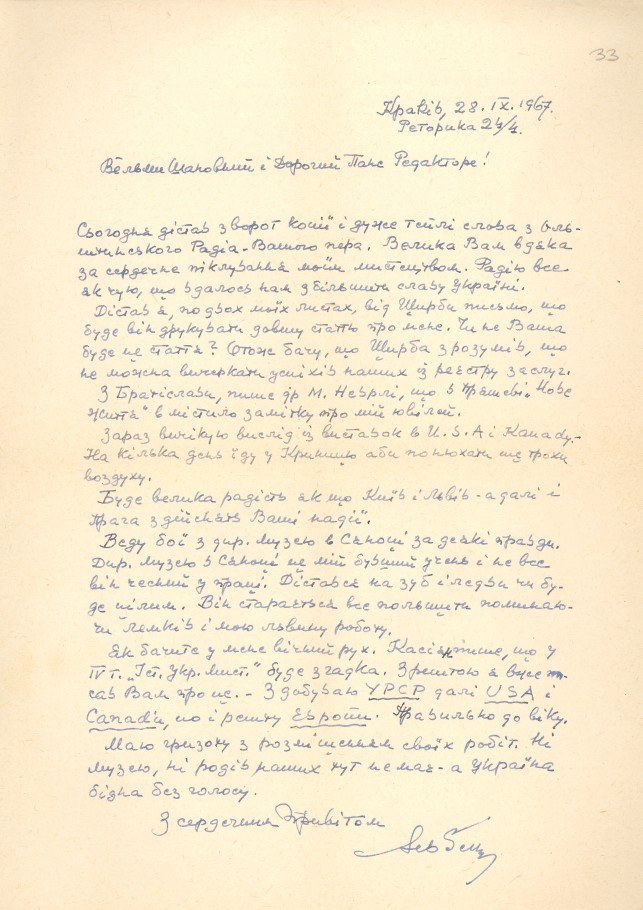 33
Краків, 28. IX. 1967.
Реторика 24/4.
Вельми Шановний і Дорогий Пане Редакторе!
Сьогодня дістав зворот копії і дуже теплі слова з Оль-
штинського Радіа-Вашого пера. Велика Вам вдяка
за сердечне піклування моїм мистецтвом. Радію все
як чую, що вдалось нам збільшити славу Україні.
Дістав я, по двох моїх листах, від Щирби письмо, що
буде він друкувати довшу статю про мене. Чи не Ваша
буде це статя? Отож бачу, що Щирба зрозумів, що
не можна вичеркати успіхів наших із реєстру заслуг.
З Братіслави, пише др М. Неврлі, що в Пряшеві „Нове
Життя" вмістило замітку про мій ювілей.
Зараз вичікую вислід із виставок в U.S.A і Kanady.-
На кілька день їду у Криницю аби понюхати ще трохи
воздуху.
Буде велика радість як що Київ і Львів - а далі і
Прага здійснять Ваші надії.
Веду бої з дир. музею в Сяноці за деякі правди.
Дир. музею в Сяноці це мій бувший учень і не все
він чесний у праці. Дістався на зуб і ледви чи бу-
де цілим. Він старається все польщити поминаю-
чи лемків і мою львину роботу.
Як бачите у мене вічний рух. Касіян пише, що у
IV т. „Іст. Укр. Мист." буде згадка. Зрештою я вже пи-
сав Вам про це. - Здобуваю УРСР далі USA і
Canadu, но і решту Европи. Правильно до віку.
Маю гризоту з розміщенням своїх робіт. Ні
музею, ні родів наших тут немає - а Україна
бідна без голосу.
З сердечним Привітом
Лев Гец